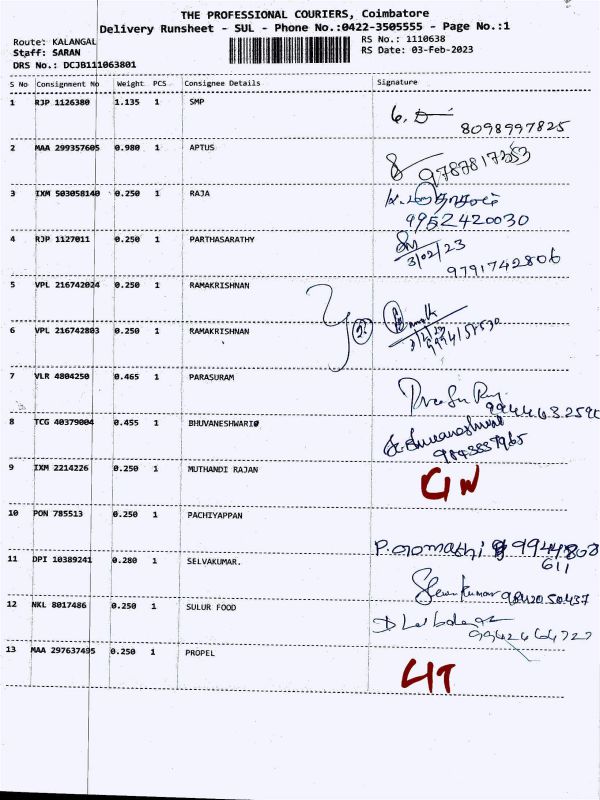 THE PROFESSIONAL COURIERS, Coimbatore
Delivery Runsheet - SUL - Phone No.:0422-3505555 - Page No.:1
Route: KALANGAL
RS No.: 1110638
Staff: SARAN
RS Date: 03-Feb-2023
DRS No.: DCJB111063801
S No Consignment No Weight PCS Consignee Details Signature
1 RJP 1126380 1.135 1 SMP
8098997825
2 MAA 299357605 0.980 1 APTUS
9787817353
3 IXM 503058140 0.250 1 RAJA
9952420030
4 RJP 1127011 0.250 1 PARTHASARATHY
3/02/23
9791742806
5 VPL 216742024 0.250 1 RAMAKRISHNAN
6 VPL 216742803 0.250 1 RAMAKRISHNAN
7 VLR 4804250 0.465 1 PARASURAM
8 TCG 40379004 0.455 1 BHUVANESHWARI0
9 IXM 2214226 0.250 1 MUTHANDI RAJAN
10 PON 785513 0.250 1 PACHIYAPPAN
P. Gomathi 9944808
611
11 DPI 10389241 0.280 1 SELVAKUMAR.
12 NKL 8017486 0.250 1 SULUR FOOD
13 MAA 297637495 0.250 1 PROPEL